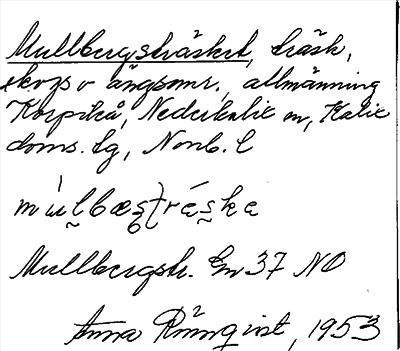 Mullbergsträsket, träsk,
skogs o ängsomr., allmänning
Korpikå, Nederkalix sn, Kalix
doms. lg, Norrb. l
Mullbergstr. Gm 37 NO
Anna Rönnqvist, 1953